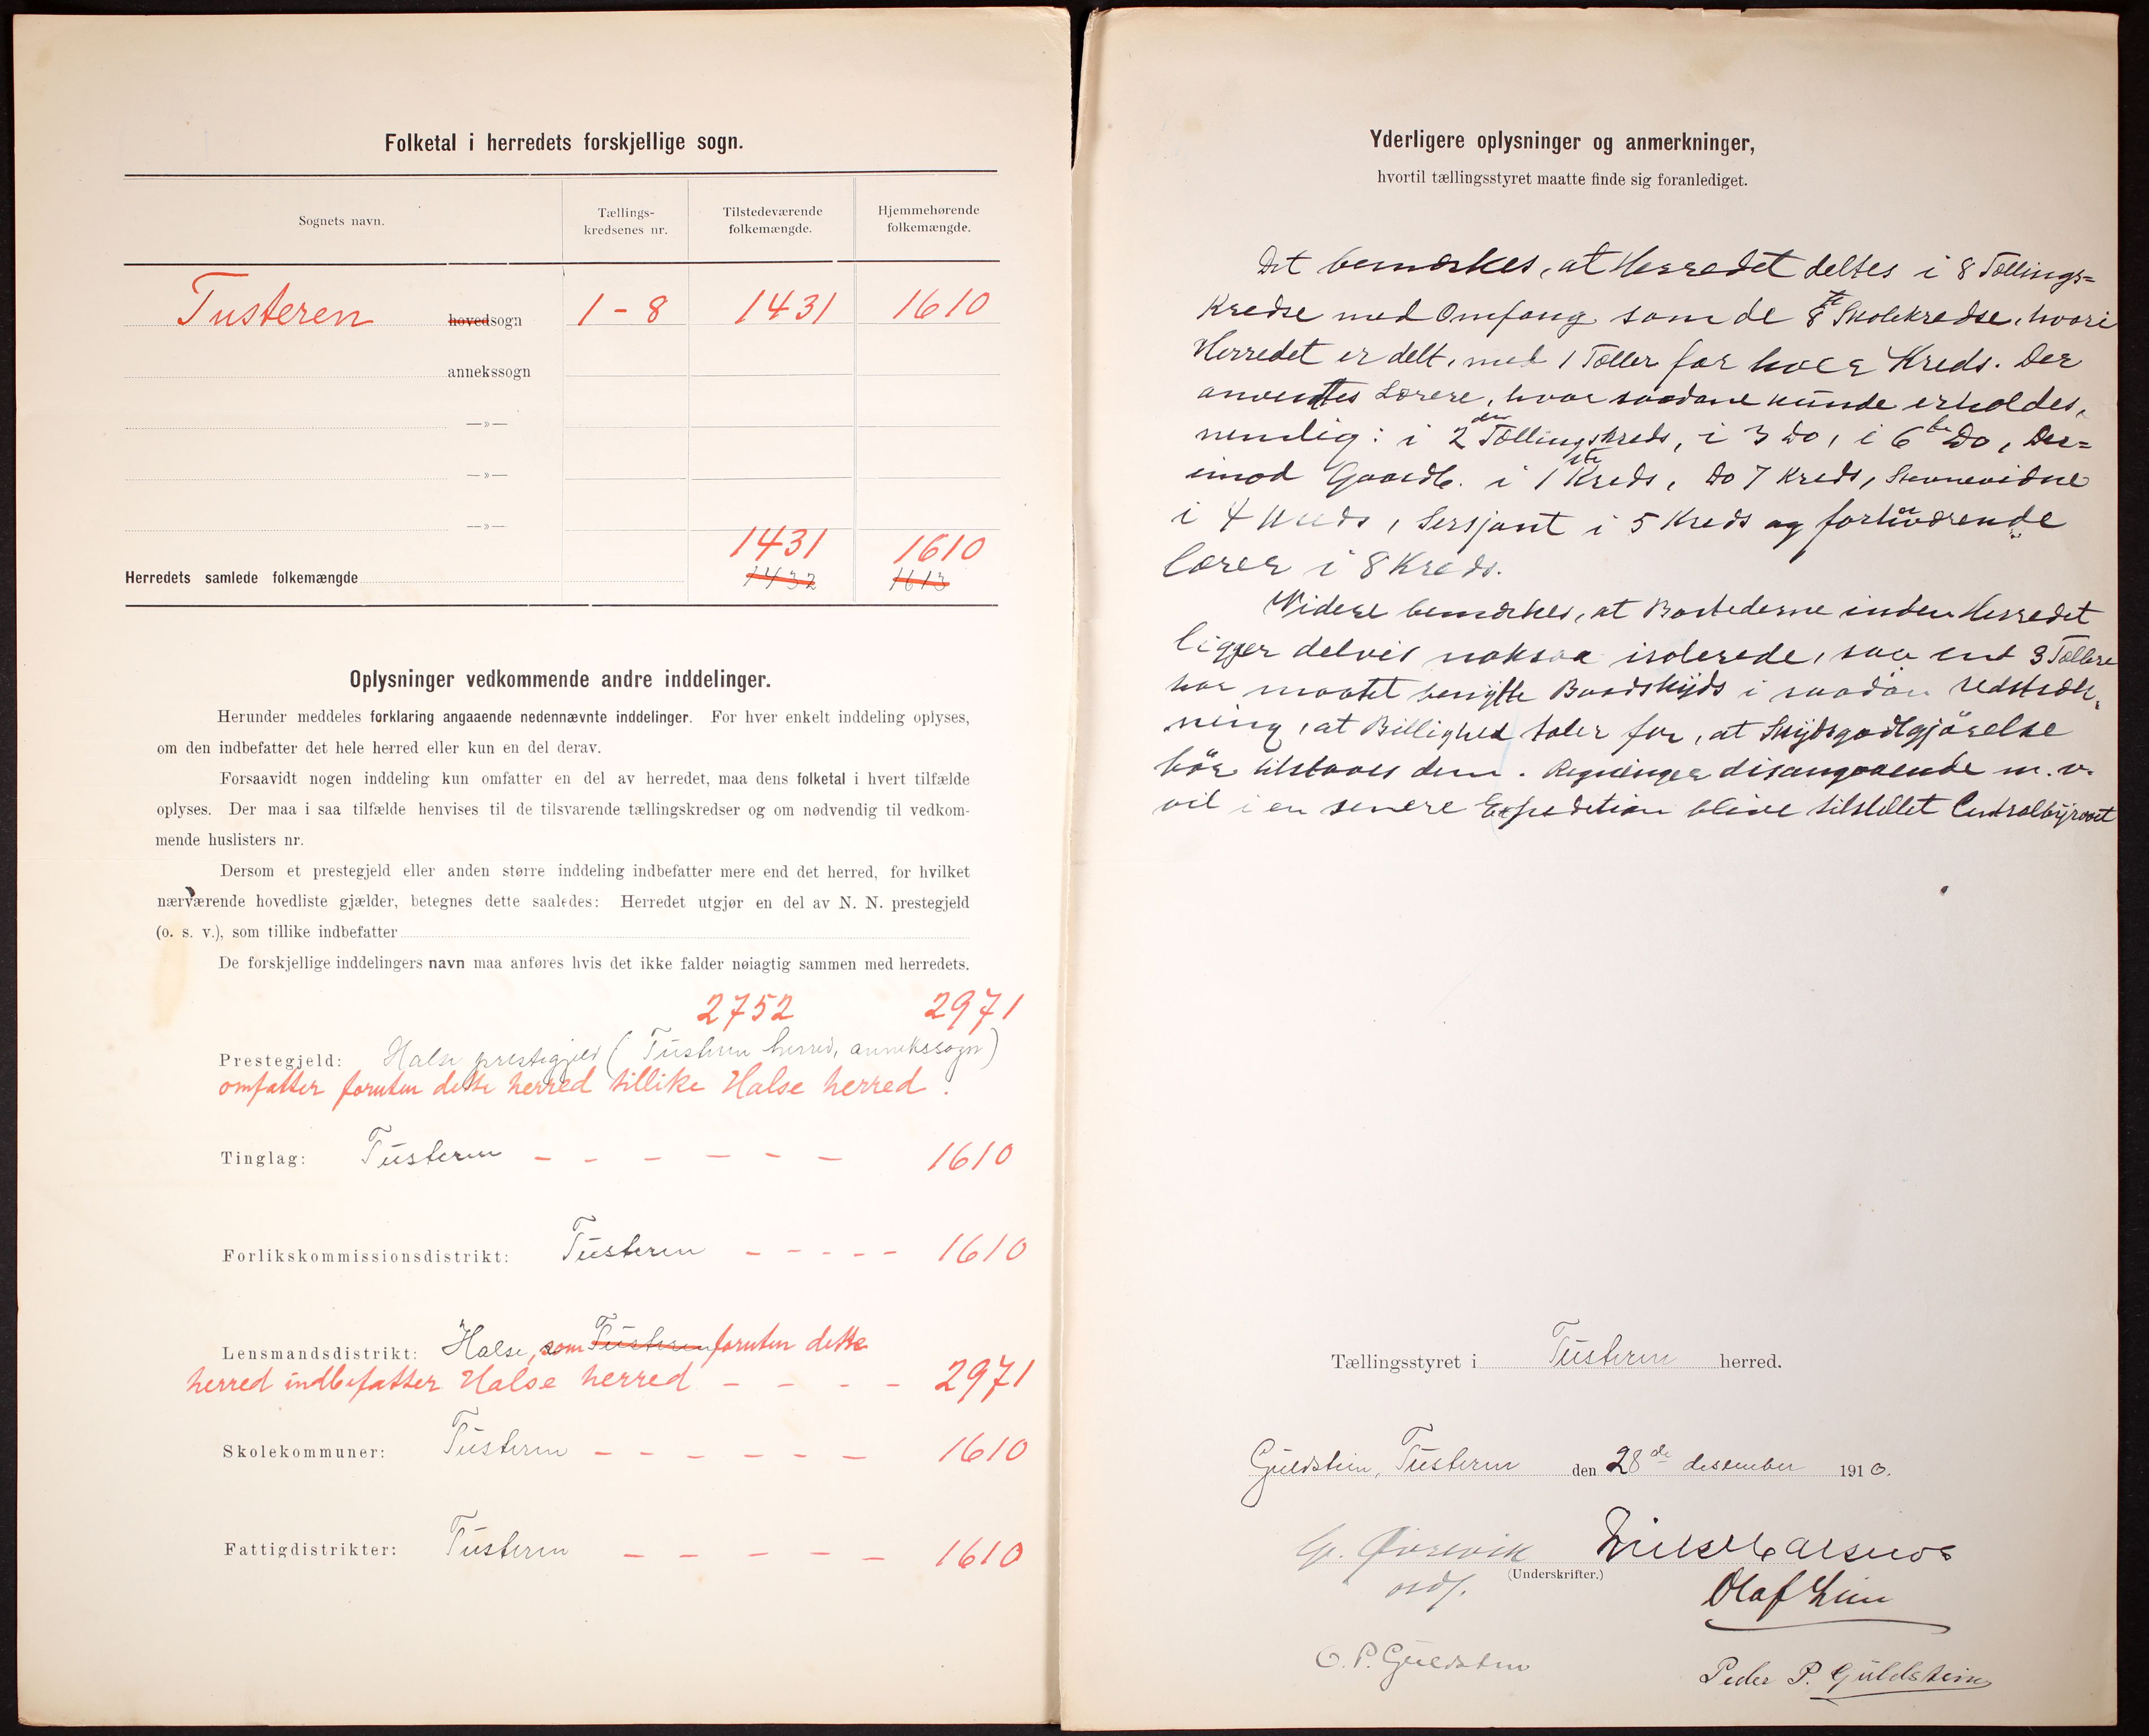 Folketal i herredets forskjellige sogn.
Sognets navn.
Tællings-
kredsenes nr.
Tilstedeværende
folkemængde.
Hjemmehørende
folkemængde.
Tusteren hovedsogn 1 - 8 1431 1610
annekssogn
—»—
—»—
—»—
1431 1610
Herredets samlede folkemængde 1432 1613
Oplysninger vedkommende andre inddelinger.
Herunder meddeles forklaring angaaende nedennævnte inddelinger. For hver enkelt inddeling oplyses,
om den indbefatter det hele herred eller kun en del derav.
Forsaavidt nogen inddeling kun omfatter en del av herredet, maa dens folketal i hvert tilfælde
oplyses. Der maa i saa tilfælde henvises til de tilsvarende tællingskredser og om nødvendig til vedkom-
mende huslisters nr.
Dersom et prestegjeld eller anden større inddeling indbefatter mere end det herred, for hvilket
nærværende hovedliste gjælder, betegnes dette saaledes: Herredet utgjør en del av N. N. prestegjeld
(o. s. v.), som tillike indbefatter
De forskjellige inddelingers navn maa anføres hvis det ikke falder nøiagtig sammen med herredets.
2752 2971
Prestegjeld: Halse prestegjeld (Tusteren herred, annekssogn)
omfatter foruten dette herred tillike Halse herred.
Tinglag: Tusteren - - - - - - 1610
Forlikskommissionsdistrikt: Tusteren - - - - - 1610
Lensmandsdistrikt: Halse, som Tusteren foruten dette
herred indbefatter Halse herred - - - - 2971
Skolekommuner: Tusteren - - - - - - 1610
Fattigdistrikter: Tusteren - - - - - 1610
Yderligere oplysninger og anmerkninger,
hvortil tællingsstyret maatte finde sig foranlediget.
Det bemærkes, at Herredet deltes i 8 Tællings=
Kredse med Omfang som de 8te Skolekredse, hvori
Herredet er delt, med 1 Tæller for hver Kreds. Der
anvendtes Lærere, hvor saadane kunde erholdes,
nemlig: i 2den Tællingskreds, i 3 Do, i 6te Do, Der=
imod Gaardb. i 1ste Kreds, Do 7 Kreds, Stevnevidne
i 4 Kreds, Sersjant i 5 Kreds og forhenværende
lærer i 8 Kreds.
Videre bemærkes, at Bostederne inden Herredet
ligger delvis noksaa isolerede, saa at 3 Tællere
har maatet benytte Baadskyds i saadan Udstræk-
ning, at Billighed taler for, at Skydsgodtgjörelse
bör tilstaaes dem. Regninger disangaaende m. v.
vil i en senere Expedition blive tilstillet Centralbyraaet
Tællingsstyret i Tusteren herred.
Guldstein, Tusteren den 28de desember 1910.
Øvrevik
ordf.
(Underskrifter.)
Olaf Lium
O. P. Guldstein
Peder P. Guldstein